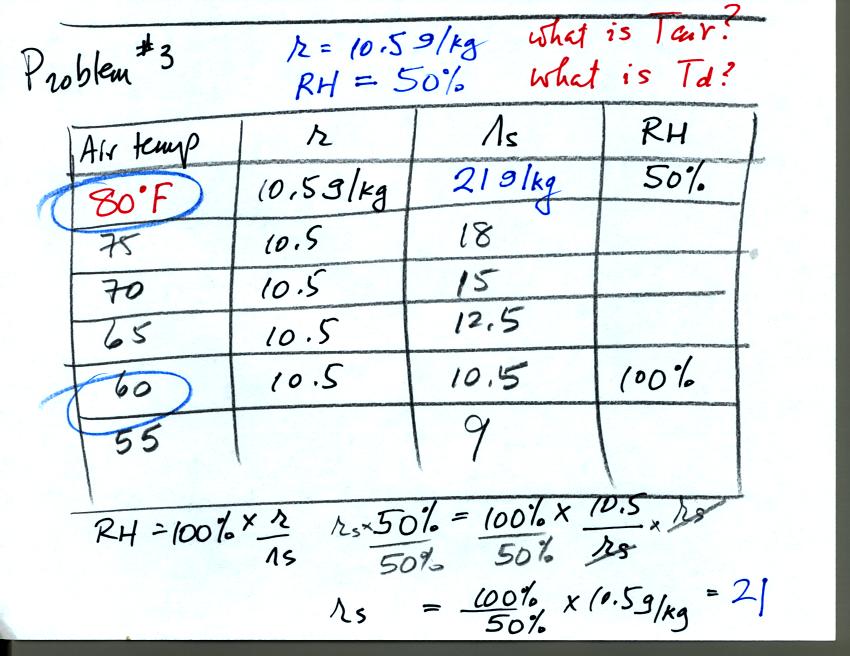 Problem #3
r = 10.5 g/kg
what is Tair?
RH = 50%
what is Td?
Air temp r rs RH
80°F 10.5 g/kg 21 g/kg 50%
75 10.5 18
70 10.5 15
65 10.5 12.5
60 10.5 10.5 100%
55 9
RH = 100% × r/rs
rs × 50%/50% = 100%/50% × 10.5/rs × rs
rs = 100%/50% × 10.5 g/kg = 21